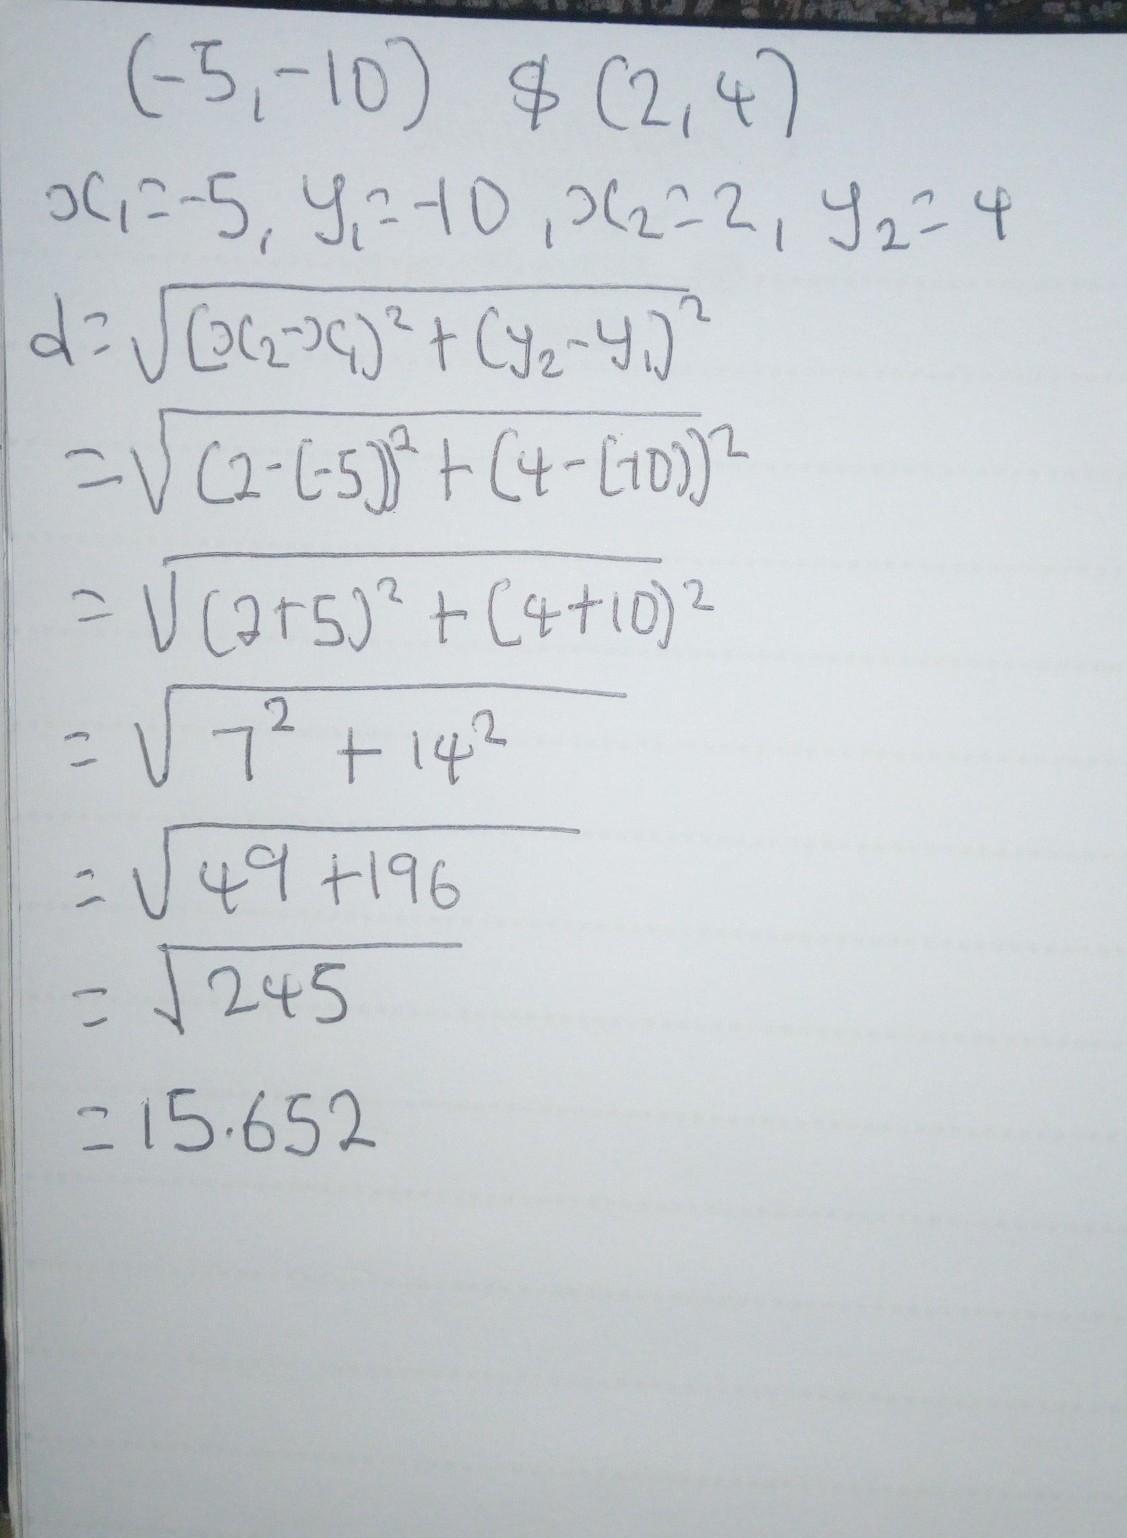 (-5,-10) $ (2,4)
x₁=-5, y₁=-10, x₂=2, y₂=4
d=√(x₂-x₁)²+(y₂-y₁)²
=√(2-(-5))²+(4-(-10))²
=√(2+5)²+(4+10)²
=√7²+14²
=√49+196
=√245
=15.652